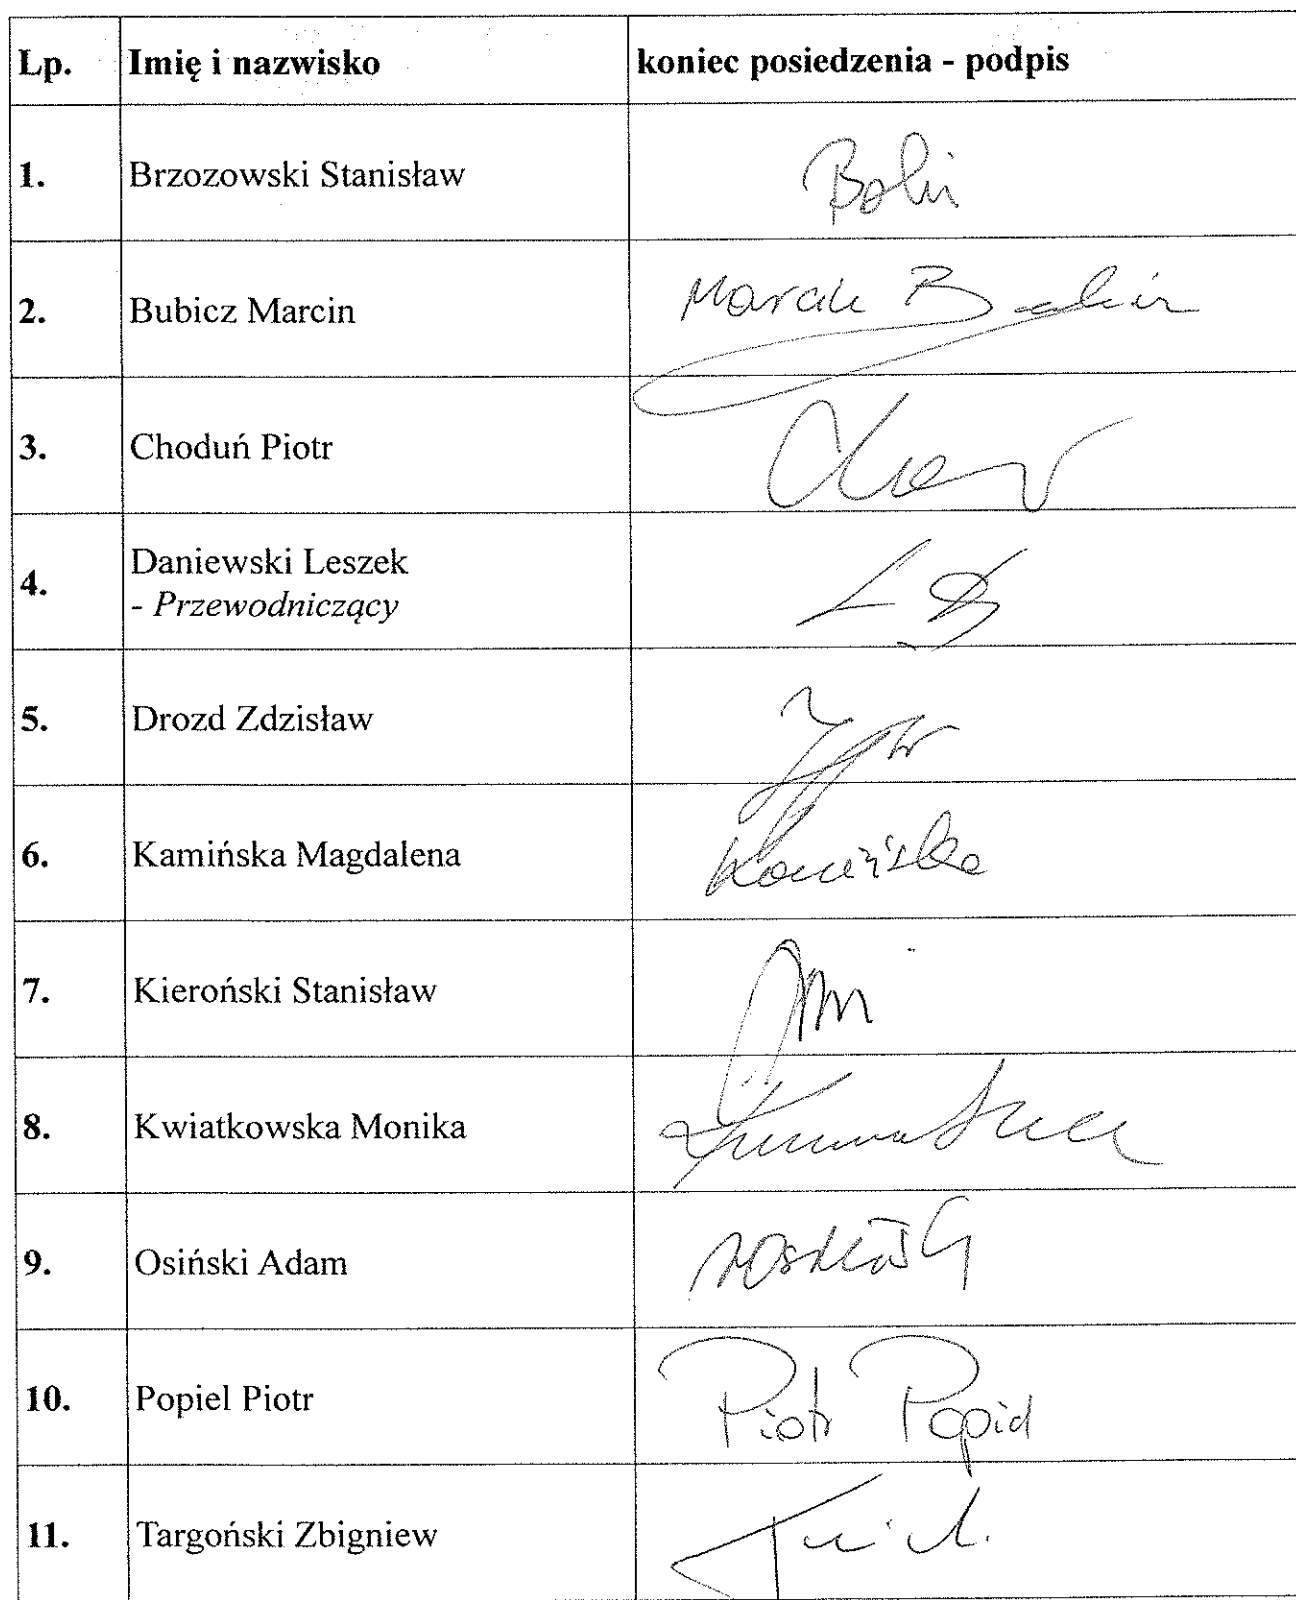 Lp. Imię i nazwisko koniec posiedzenia - podpis
1. Brzozowski Stanisław
2. Bubicz Marcin
3. Choduń Piotr
4. Daniewski Leszek
- Przewodniczący
5. Drozd Zdzisław
6. Kamińska Magdalena Kamińska
7. Kieroński Stanisław
8. Kwiatkowska Monika
9. Osiński Adam
10. Popiel Piotr Piotr Popiel
11. Targoński Zbigniew